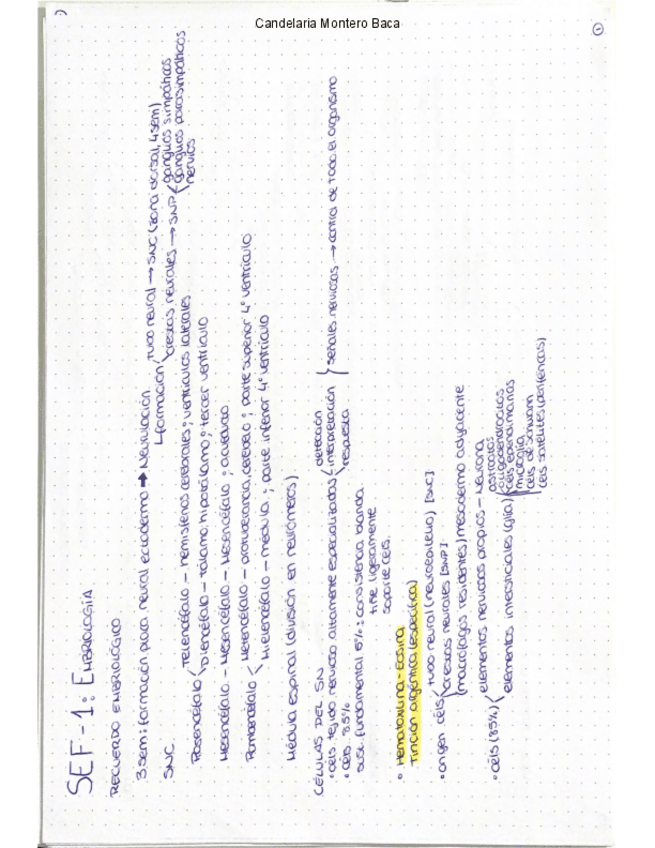 Candelaria Montero Baca
1
SEF-1: EMBRIOLOGÍA
RECUERDO EMBRIOLÓGICO
3 sem: formación placa neural ectodermo → NEURULACIÓN
formación tubo neural → SNC (zona dorsal, 4 sem)
crestas neurales → SNP ganglios simpáticos
ganglios parasimpáticos
nervios
SNC
Telencéfalo - hemisferios cerebrales; ventrículos laterales
Diencéfalo - tálamo, hipotálamo; tercer ventrículo
Mesencéfalo - Mesencéfalo; acueducto
Metencéfalo - protuberancia, cerebelo; parte superior 4º ventrículo
Mielencéfalo - médula; parte inferior 4º ventrículo
Médula espinal (división en neurómeros)
CÉLULAS DEL SN
• céls. tejido nervioso altamente especializados detección
interpretación
respuesta
señales nerviosas → control de todo el organismo
• céls. 85%
sust. fundamental 15%: consistencia blanda
tiñe ligeramente
soporte céls.
• Hematoxilina-Eosina
Tinción argéntica (específica)
• origen céls tubo neural (neuroepitelio) [SNC]
crestas neurales [SNP]
(macrófagos residentes) mesodermo adyacente
• céls (85%) elementos nerviosos propios - NEURONA
elementos intersticiales (glía) astrocitos
oligodendrocitos
céls ependimarias
microglía
céls de schwann
céls satélites (periféricas)